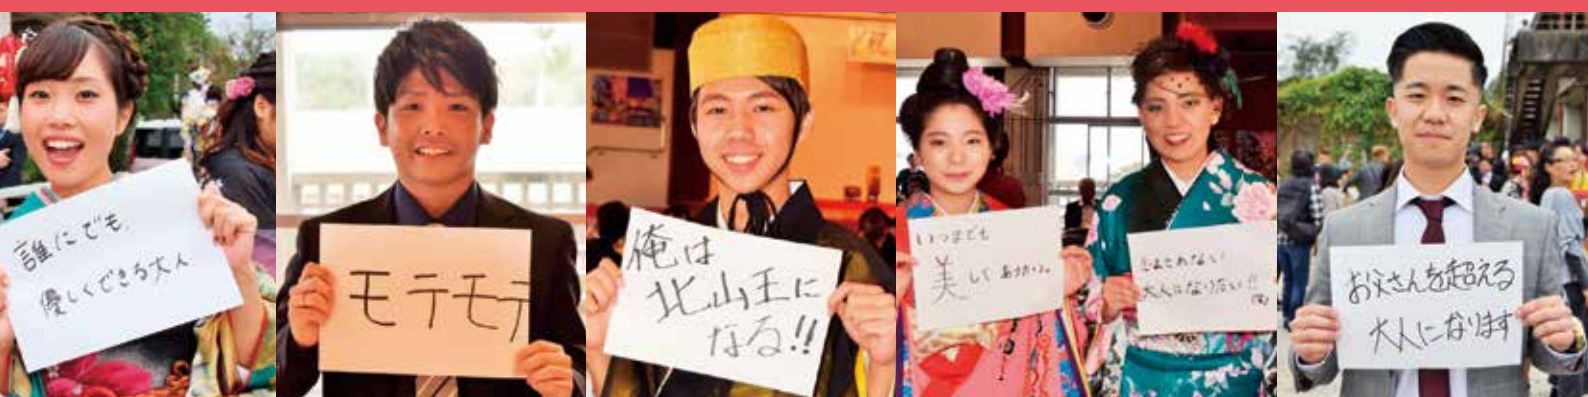 誰にでも、
優しくできる大人
モテモテ
俺は
北山王に
なる!!
いつまでも
美しくありたい。
大人になりたい!!
お父さんを超える
大人になります